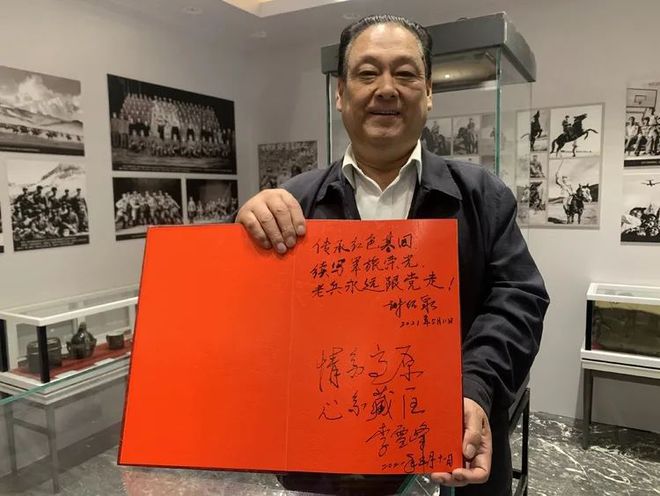 传承红色基因
续写军旅荣光.
老兵永远跟党走!
2021年5月11日
情系高原
心系藏区
李雪峰
2021年5月十一日